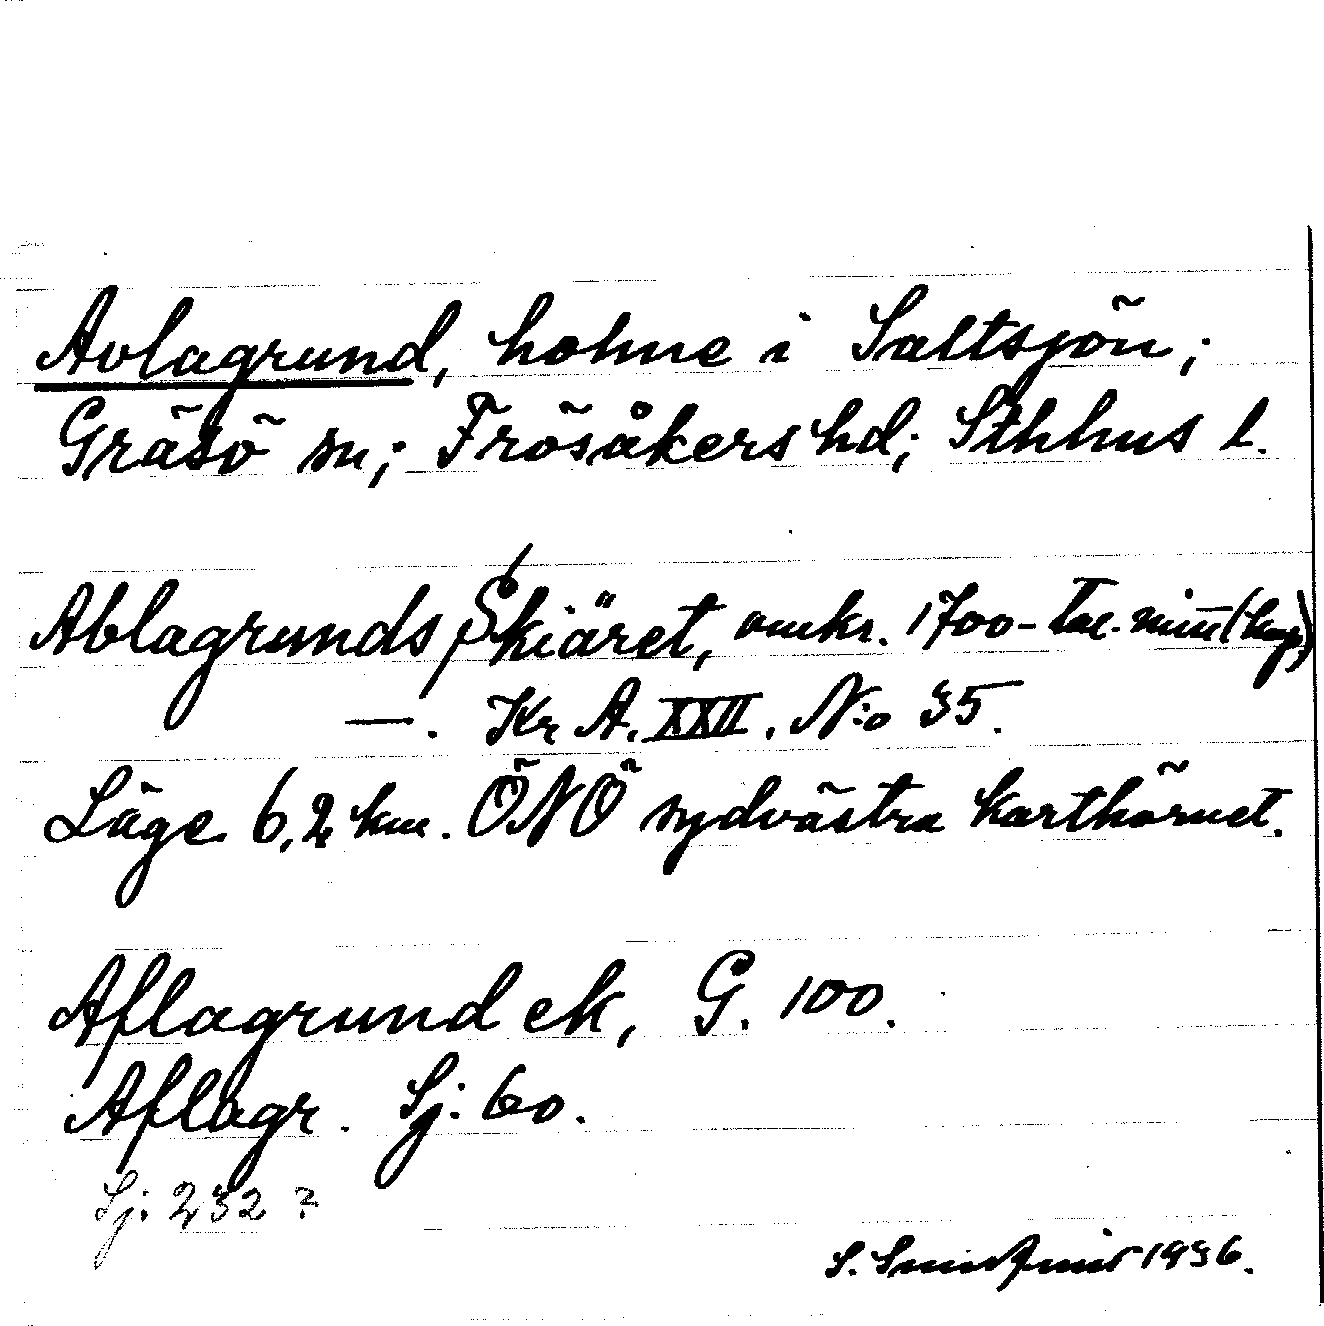 Avlagrund, holme i Saltsjön;
Gräsö sn; Frösåkers hd; Sthlms l.
Ablagrunds Skiäret, omkr. 1700-tal. mitt (kop)
—. Kr A. XXII. N:o 35.
Läge 6,2 km. ÖNÖ sydvästra karthörnet.
Aflagrund ek, G. 100.
Aflagr. Sj. 60.
Sj: 232 ?
S. 1936.